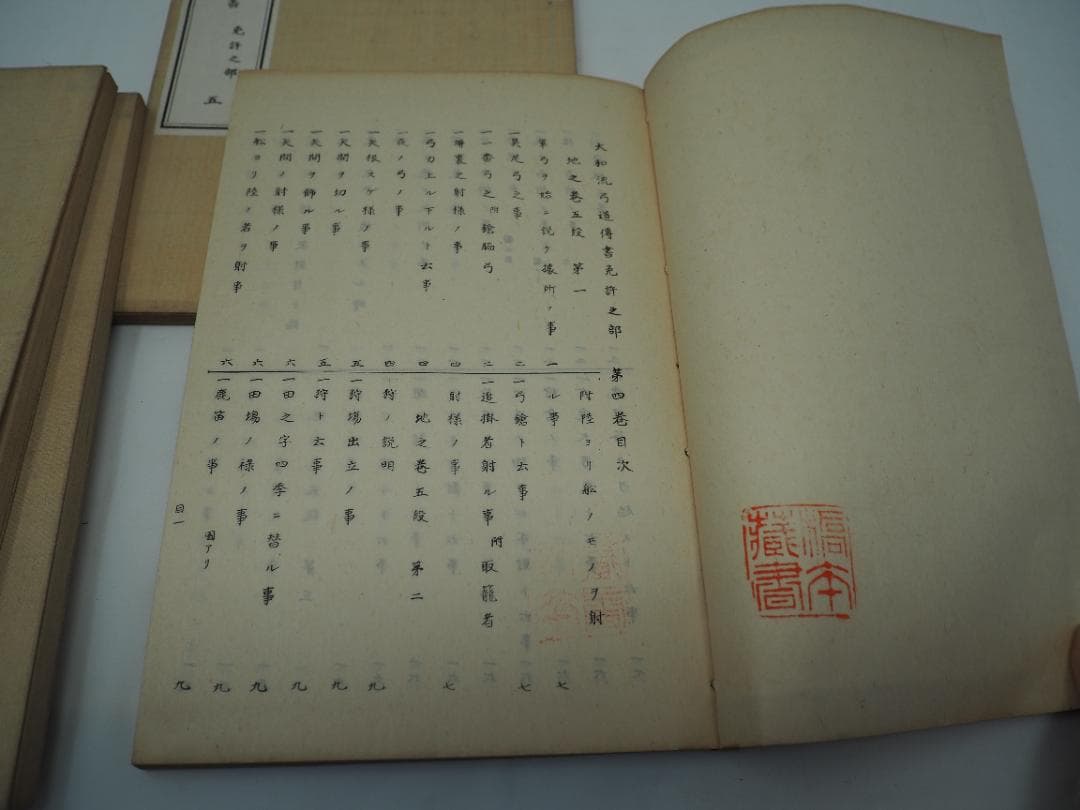 免許之部 五
大和流弓道傳書免許之部 第四卷目次
地之卷五段 第一
一筆弓ヲ始ニ説ク據所ノ事 一
一真尼弓之事 二
一一番弓之 附鎗脇弓 二
一塀裏之射様ノ事 四
一弓力上ル下ルト云事 四
一夜ノ弓ノ事 四
一矢根スゲ様ノ事 五
一矢間ヲ切ル事 五
一矢間ヲ飾ル事 六
一矢間ノ射様ノ事 六
一船ヨリ陸ノ者ヲ射事 六
附陸ヨリ船ノモノヲ射
ル事 七
一弓鎗ト云事 七
一追掛者射ル事 附取籠者
射様ノ事 七
地之卷五段 第二
狩ノ説明 九
一狩場出立ノ事 九
一狩ト云事 九
一田之字四季ニ替ル事 九
一田場ノ禄ノ事 九
一鹿笛ノ事 圖アリ 九
目一
橋本
藏書